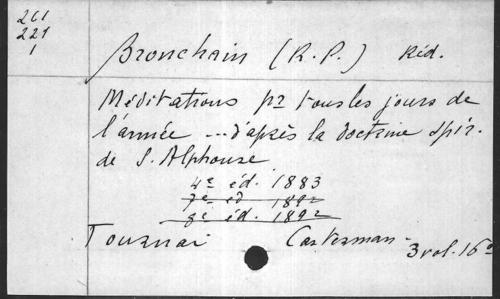 261
221
1
Bronchain (R.P.) Réd.
Méditations pr tous les jours de
l'année ... d'après la doctrine spir.
de S. Alphonse
4e éd. 1883
7e éd 1892
8e éd. 1892
Tournai Casterman - 3 vol. 16o